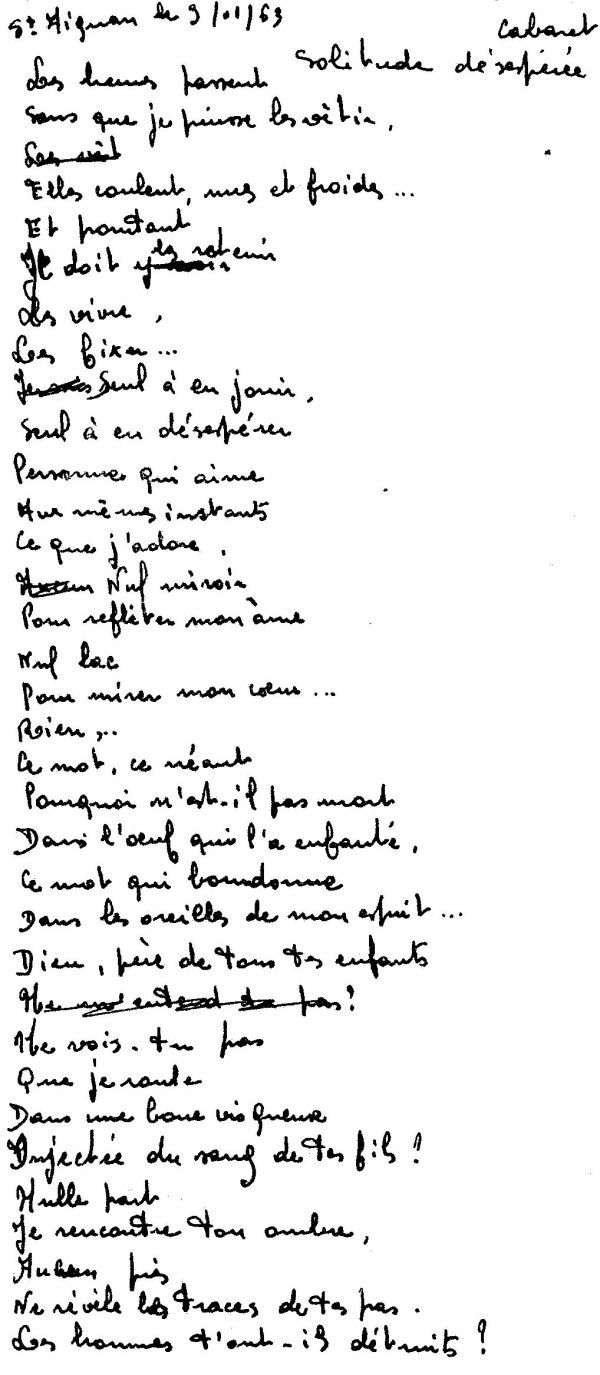 St Aignan le 9/01/63
Cabaret
Solitude désespérée
Les heures passent
Sans que je puisse les vêtir,
Les vêt
Elles coulent, nues et froides...
Et pourtant
Je doit les retenir
Les vivre,
Les fixer...
Seul à en jouir,
Seul à en désespérer
Personne qui aime
Aux mêmes instants
Ce que j'adore,
Aucun Nul miroir
Pour refléter mon âme
Nul lac
Pour mirer mon coeur...
Rien...
Ce mot, ce néant
Pourquoi n'est-il pas mort
Dans l'oeuf qui l'a enfanté,
Ce mot qui bourdonne
Dans les oreilles de mon esprit...
Dieu, père de tous tes enfants
Me m'entend tu pas?
Me vois-tu pas
Que je roule
Dans une boue visqueuse
Injectée du sang de tes fils?
Nulle part
Je rencontre ton ombre,
Aucun
Ne révèle les traces de tes pas.
Les hommes t'ont-ils détruits?